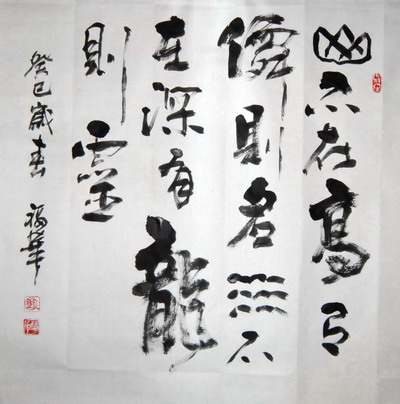 山不在高有
僊則名水不
在深有龍
則靈
癸巳歲書 福華